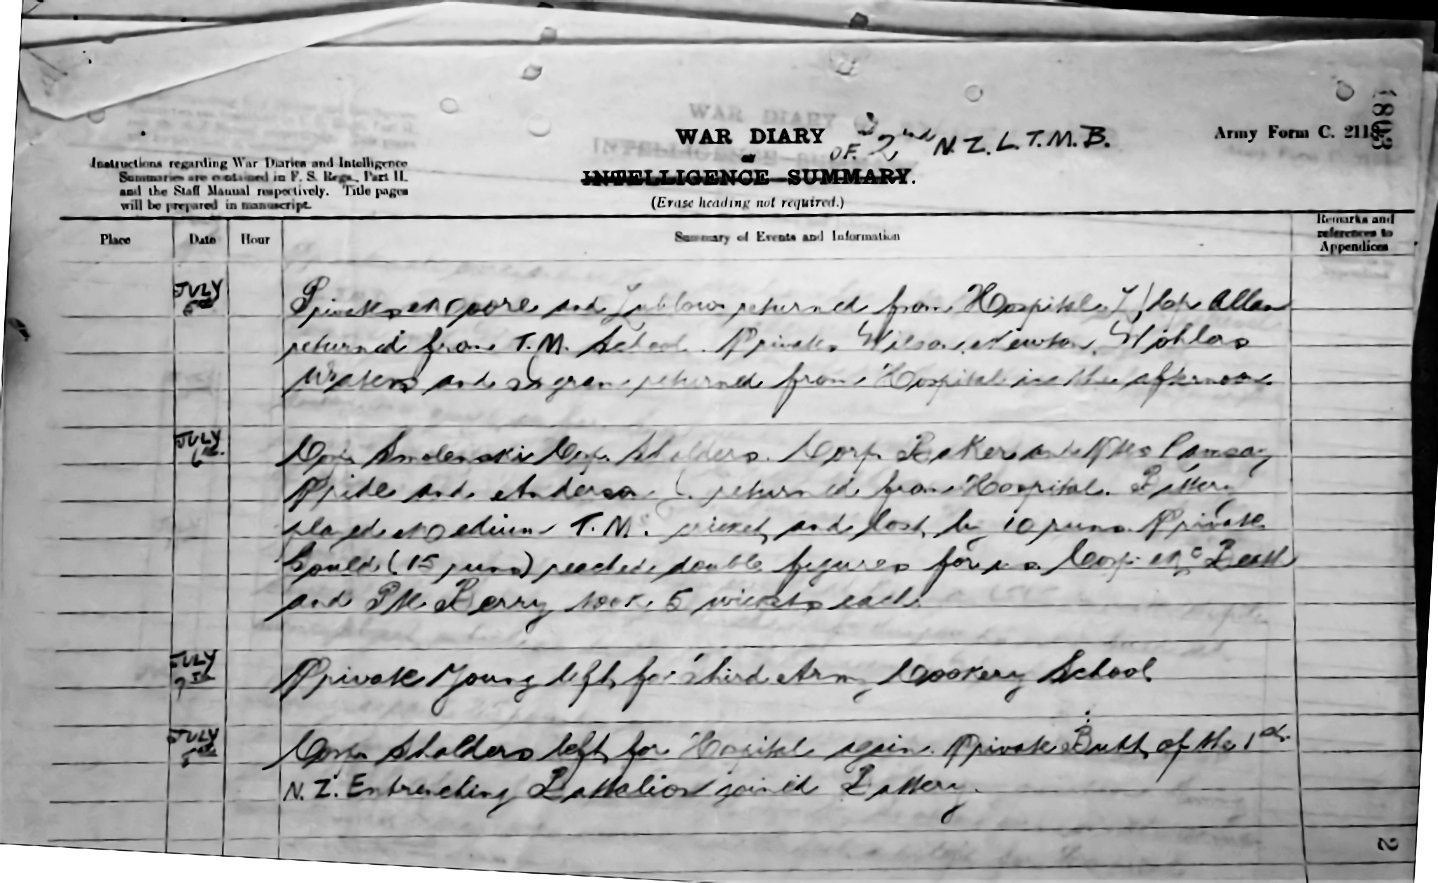 1803
WAR DIARY
OF 2nd N.Z.L.T.M.B.
Army Form C. 2118.
or
INTELLIGENCE SUMMARY.
(Erase heading not required.)
Instructions regarding War Diaries and Intelligence
Summaries are contained in F. S. Regs., Part II.
and the Staff Manual respectively. Title pages
will be prepared in manuscript.
Place Date Hour Summary of Events and Information
Remarks and
references to
Appendices
JULY 5th Privates Moore and returned from Hospital. Allan
returned from T.M. School. Privates Wilson, Newton, Wohlers
Waters and returned from Hospital in the afternoon.
JULY 6th Corp. Smolenski Corp. Shalders. Corp. Baker and Ptes Ramsay
Pride and Anderson returned from Hospital. Battery
played Medium T.M. cricket and lost by 10 runs. Private
Gould (15 runs) reached double figures for us. Corp. McBeath
and Pte Berry took 5 wickets each.
JULY 7th Private Young left for Third Army Cookery School
JULY Corp. Shalders left for Hospital again. Private Butt of the 1st
N.Z. Entrenching Battalion joined Battery.
2